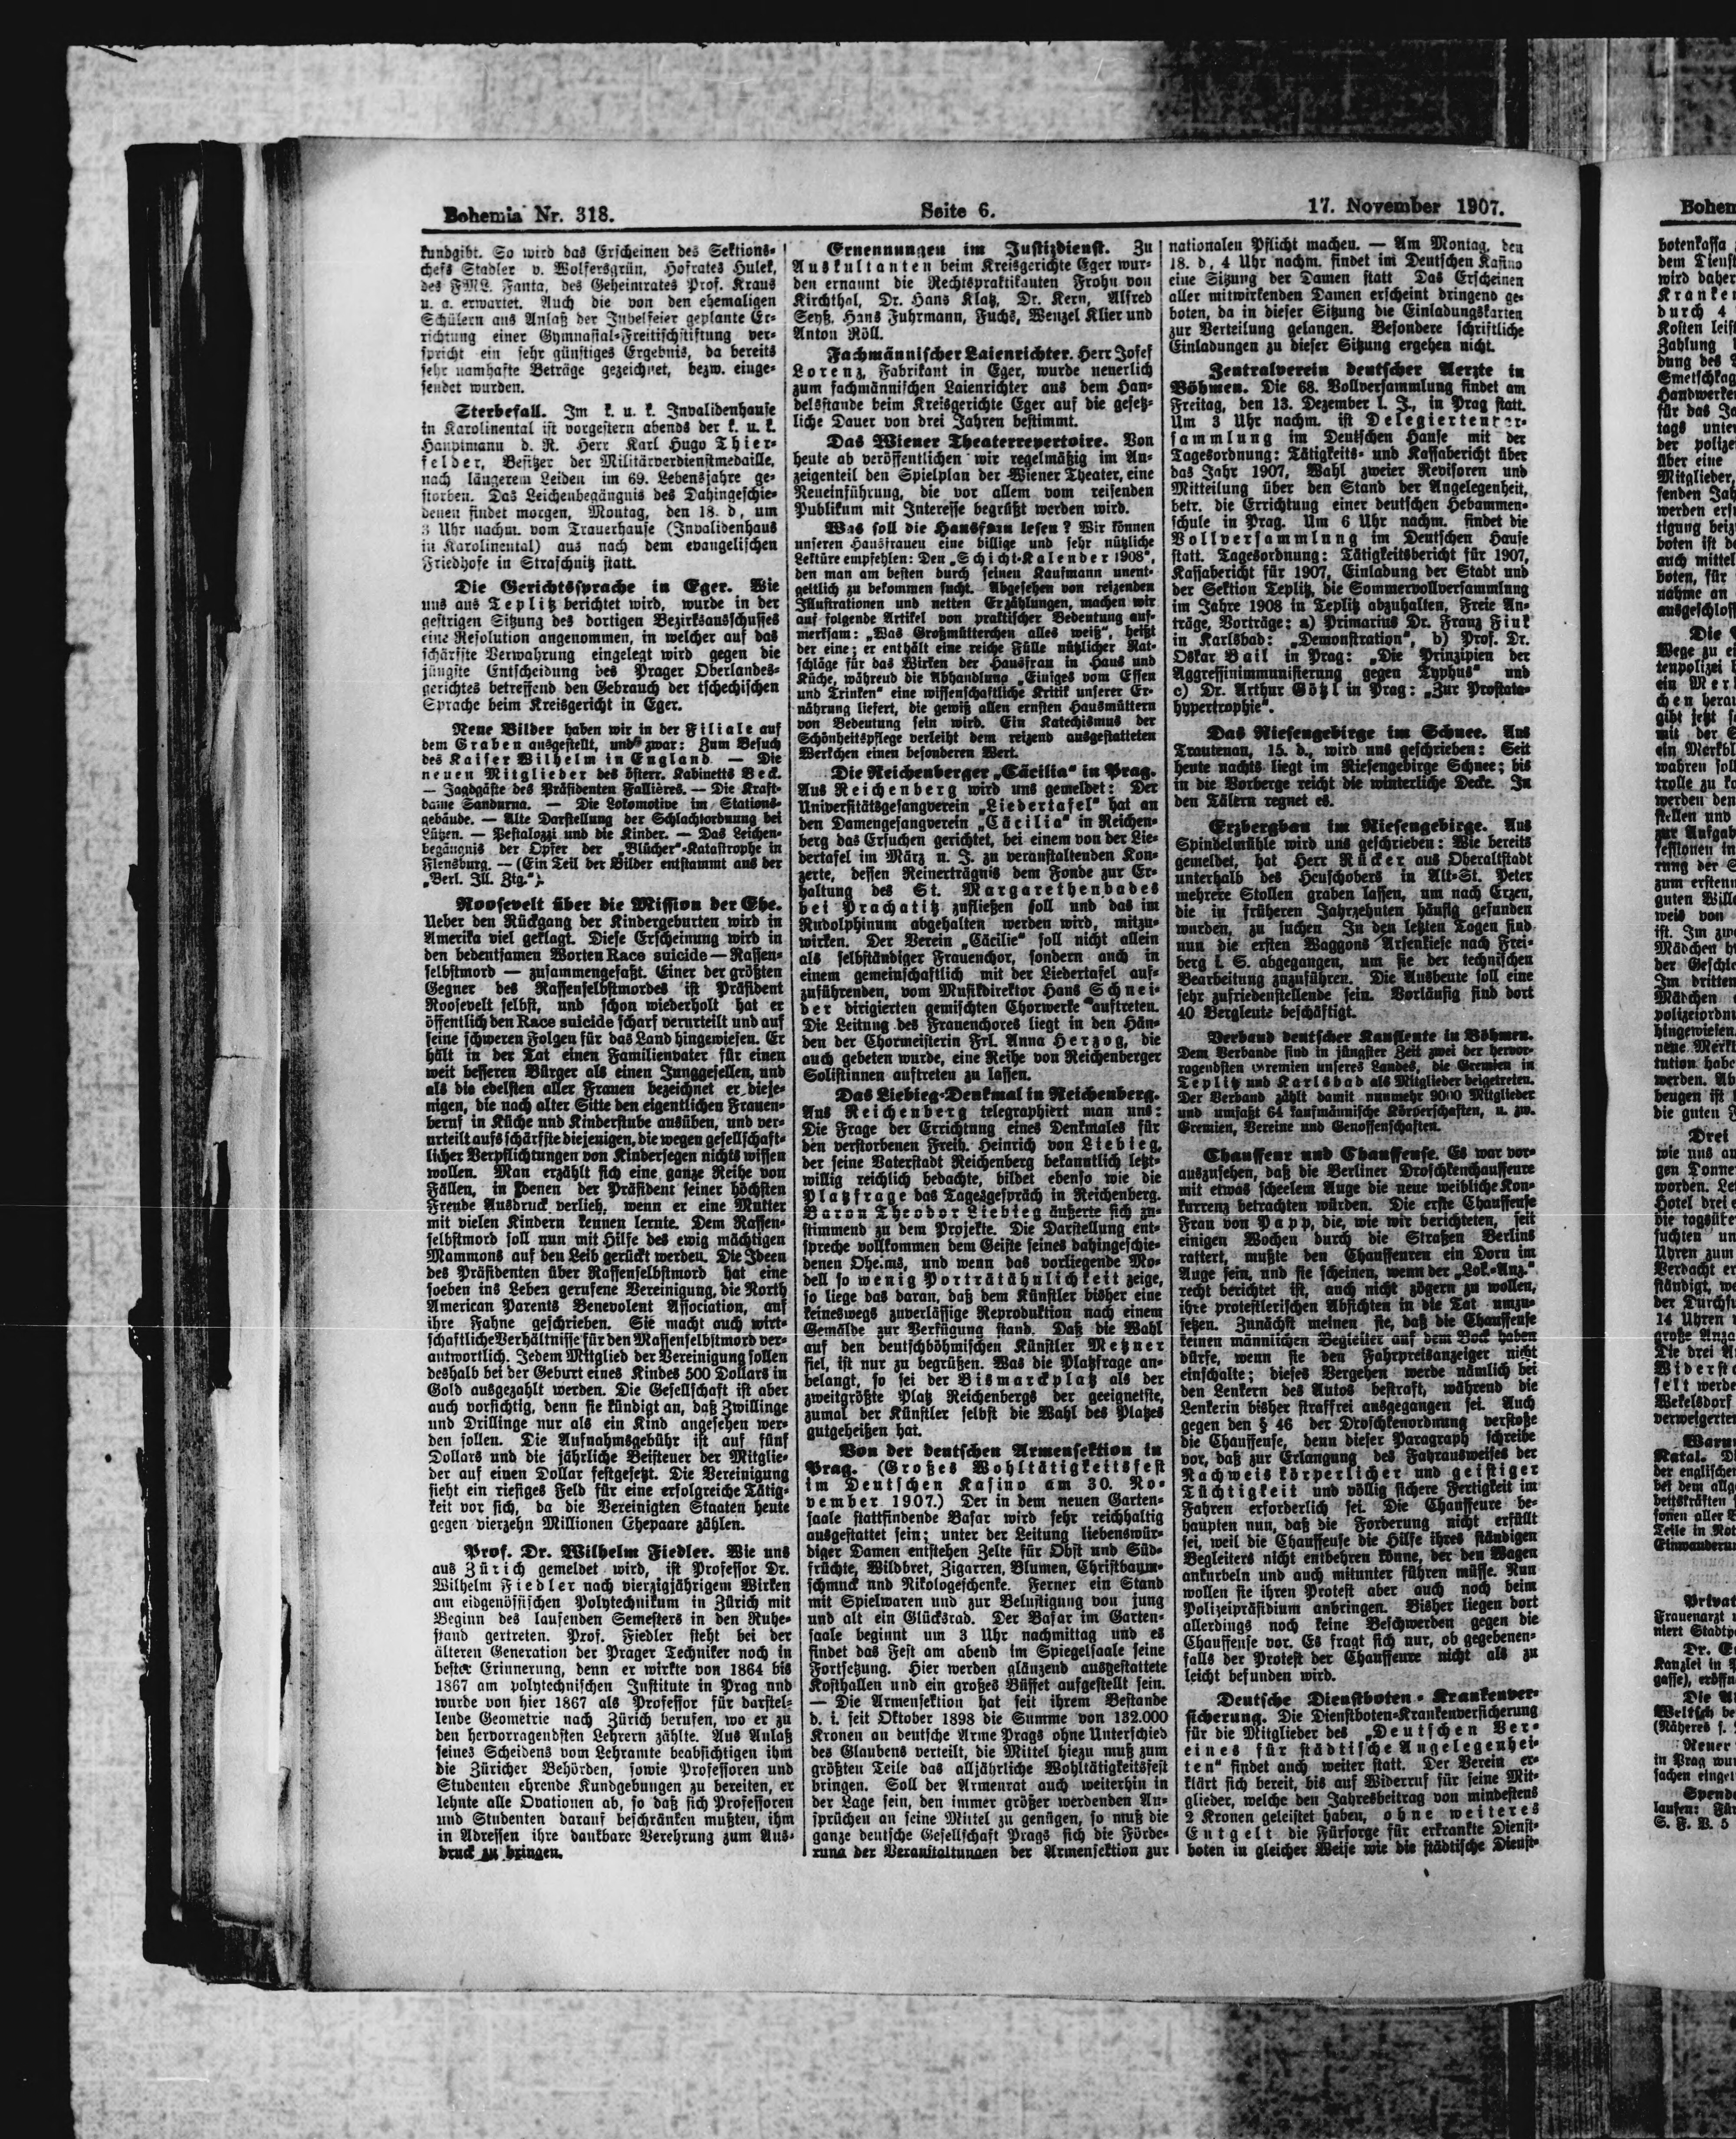 Bohemia Nr. 318.
Seite 6.
17. November 1907.
kundgibt. So wird das Erscheinen des Sektions-
chefs Stadler v. Wolfersgrün, Hofrates Hulek,
des FML. Fanta, des Geheimrates Prof. Kraus
u. a. erwartet. Auch die von den ehemaligen
Schülern aus Anlaß der Jubelfeier geplante Er-
richtung einer Gymnasial-Freitischstiftung ver-
spricht ein sehr günstiges Ergebnis, da bereits
sehr namhafte Beträge gezeichnet, bezw. einge-
sendet wurden.
Sterbefall. Im k. u. k. Invalidenhause
in Karolinental ist vorgestern abends der k. u. k.
Hauptmann d. R. Herr Karl Hugo Thier-
felder, Besitzer der Militärverdienstmedaille,
nach längerem Leiden im 69. Lebensjahre ge-
storben. Das Leichenbegängnis des Dahingeschie-
denen findet morgen, Montag, den 18. d, um
3 Uhr nachm. vom Trauerhause (Invalidenhaus
in Karolinental) aus nach dem evangelischen
Friedhofe in Straschnitz statt.
Die Gerichtssprache in Eger. Wie
uns aus Teplitz berichtet wird, wurde in der
gestrigen Sitzung des dortigen Bezirksausschusses
eine Resolution angenommen, in welcher auf das
schärfste Verwahrung eingelegt wird gegen die
jüngste Entscheidung des Prager Oberlandes-
gerichtes betreffend den Gebrauch der tschechischen
Sprache beim Kreisgericht in Eger.
Neue Bilder haben wir in der Filiale auf
dem Graben ausgestellt, und zwar: Zum Besuch
des Kaiser Wilhelm in England. — Die
neuen Mitglieder des österr. Kabinetts Beck.
— Jagdgäste des Präsidenten Fallières. — Die Kraft-
dame Sandurna. — Die Lokomotive im Stations-
gebäude. — Alte Darstellung der Schlachtordnung bei
Lützen. — Pestalozzi und die Kinder. — Das Leichen-
begängnis der Opfer der „Blücher“-Katastrophe in
Flensburg. — (Ein Teil der Bilder entstammt aus der
„Berl. Ill. Ztg.“).
Roosevelt über die Mission der Ehe.
Ueber den Rückgang der Kindergeburten wird in
Amerika viel geklagt. Diese Erscheinung wird in
den bedeutsamen Worten Race suicide — Rassen-
selbstmord — zusammengefaßt. Einer der größten
Gegner des Rassenselbstmordes ist Präsident
Roosevelt selbst, und schon wiederholt hat er
öffentlich den Race suicide scharf verurteilt und auf
seine schweren Folgen für das Land hingewiesen. Er
hält in der Tat einen Familienvater für einen
weit besseren Bürger als einen Junggesellen, und
als die edelsten aller Frauen bezeichnet er dieje-
nigen, die nach alter Sitte den eigentlichen Frauen-
beruf in Küche und Kinderstube ausüben, und ver-
urteilt aufs schärfste diejenigen, die wegen gesellschaft-
licher Verpflichtungen von Kindersegen nichts wissen
wollen. Man erzählt sich eine ganze Reihe von
Fällen, in denen der Präsident seiner höchsten
Freude Ausdruck verlieh, wenn er eine Mutter
mit vielen Kindern kennen lernte. Dem Rassen-
selbstmord soll nun mit Hilfe des ewig mächtigen
Mammons auf den Leib gerückt werden. Die Ideen
des Präsidenten über Rassenselbstmord hat eine
soeben ins Leben gerufene Vereinigung, die North
American Parents Benevolent Association, auf
ihre Fahne geschrieben. Sie macht auch wirt-
schaftliche Verhältnisse für den Massenselbstmord ver-
antwortlich. Jedem Mitglied der Vereinigung sollen
deshalb bei der Geburt eines Kindes 500 Dollars in
Gold ausgezahlt werden. Die Gesellschaft ist aber
auch vorsichtig, denn sie kündigt an, daß Zwillinge
und Drillinge nur als ein Kind angesehen wer-
den sollen. Die Aufnahmsgebühr ist auf fünf
Dollars und die jährliche Beisteuer der Mitglie-
der auf einen Dollar festgesetzt. Die Vereinigung
sieht ein riesiges Feld für eine erfolgreiche Tätig-
keit vor sich, da die Vereinigten Staaten heute
gegen vierzehn Millionen Ehepaare zählen.
Prof. Dr. Wilhelm Fiedler. Wie uns
aus Zürich gemeldet wird, ist Professor Dr.
Wilhelm Fiedler nach vierzigjährigem Wirken
am eidgenössischen Polytechnikum in Zürich mit
Beginn des laufenden Semesters in den Ruhe-
stand getreten. Prof. Fiedler steht bei der
älteren Generation der Prager Techniker noch in
bester Erinnerung, denn er wirkte von 1864 bis
1867 am polytechnischen Institute in Prag und
wurde von hier 1867 als Professor für darstel-
lende Geometrie nach Zürich berufen, wo er zu
den hervorragendsten Lehrern zählte. Aus Anlaß
seines Scheidens vom Lehramte beabsichtigen ihm
die Züricher Behörden, sowie Professoren und
Studenten ehrende Kundgebungen zu bereiten, er
lehnte alle Ovationen ab, so daß sich Professoren
und Studenten darauf beschränken mußten, ihm
in Adressen ihre dankbare Verehrung zum Aus-
druck zu bringen.
Ernennungen im Justizdienst. Zu
Auskultanten beim Kreisgerichte Eger wur-
den ernannt die Rechtspraktikanten Frohn von
Kirchthal, Dr. Hans Klatz, Dr. Kern, Alfred
Seyß, Hans Fuhrmann, Fuchs, Wenzel Klier und
Anton Röll.
Fachmännischer Laienrichter. Herr Josef
Lorenz, Fabrikant in Eger, wurde neuerlich
zum fachmännischen Laienrichter aus dem Han-
delsstande beim Kreisgerichte Eger auf die gesetz-
liche Dauer von drei Jahren bestimmt.
Das Wiener Theaterrepertoire. Von
heute ab veröffentlichen wir regelmäßig im An-
zeigenteil den Spielplan der Wiener Theater, eine
Neueinführung, die vor allem vom reisenden
Publikum mit Interesse begrüßt werden wird.
Was soll die Hausfrau lesen? Wir können
unseren Hausfrauen eine billige und sehr nützliche
Lektüre empfehlen: Den „Schicht-Kalender 1908“,
den man am besten durch seinen Kaufmann unent-
geltlich zu bekommen sucht. Abgesehen von reizenden
Illustrationen und netten Erzählungen, machen wir
auf folgende Artikel von praktischer Bedeutung auf-
merksam: „Was Großmütterchen alles weiß“, heißt
der eine; er enthält eine reiche Fülle nützlicher Rat-
schläge für das Wirken der Hausfrau in Haus und
Küche, während die Abhandlung „Einiges vom Essen
und Trinken“ eine wissenschaftliche Kritik unserer Er-
nährung liefert, die gewiß allen ernsten Hausmüttern
von Bedeutung sein wird. Ein Katechismus der
Schönheitspflege verleiht dem reizend ausgestatteten
Werkchen einen besonderen Wert.
Die Reichenberger „Cäcilia“ in Prag.
Aus Reichenberg wird uns gemeldet: Der
Universitätsgesangverein „Liedertafel“ hat an
den Damengesangverein „Cäcilia“ in Reichen-
berg das Ersuchen gerichtet, bei einem von der Lie-
dertafel im März n. J. zu veranstaltenden Kon-
zerte, dessen Reinerträgnis dem Fonde zur Er-
haltung des St. Margarethenbades
bei Prachatitz zufließen soll und das im
Rudolphinum abgehalten werden wird, mitzu-
wirken. Der Verein „Cäcilie“ soll nicht allein
als selbständiger Frauenchor, sondern auch in
einem gemeinschaftlich mit der Liedertafel auf-
zuführenden, vom Musikdirektor Hans Schnei-
der dirigierten gemischten Chorwerke auftreten.
Die Leitung des Frauenchores liegt in den Hän-
den der Chormeisterin Frl. Anna Herzog, die
auch gebeten wurde, eine Reihe von Reichenberger
Solistinnen auftreten zu lassen.
Das Liebieg-Denkmal in Reichenberg.
Aus Reichenberg telegraphiert man uns:
Die Frage der Errichtung eines Denkmales für
den verstorbenen Freih. Heinrich von Liebieg,
der seine Vaterstadt Reichenberg bekanntlich letzt-
willig reichlich bedachte, bildet ebenso wie die
Platzfrage das Tagesgespräch in Reichenberg.
Baron Theodor Liebieg äußerte sich zu-
stimmend zu dem Projekte. Die Darstellung ent-
spreche vollkommen dem Geiste seines dahingeschie-
denen Oheims, und wenn das vorliegende Mo-
dell so wenig Porträtähnlichkeit zeige,
so liege das daran, daß dem Künstler bisher eine
keineswegs zuverlässige Reproduktion nach einem
Gemälde zur Verfügung stand. Daß die Wahl
auf den deutschböhmischen Künstler Metzner
fiel, ist nur zu begrüßen. Was die Platzfrage an-
belangt, so sei der Bismarckplatz als der
zweitgrößte Platz Reichenbergs der geeignetste,
zumal der Künstler selbst die Wahl des Platzes
gutgeheißen hat.
Von der deutschen Armensektion in
Prag. (Großes Wohltätigkeitsfest
im Deutschen Kasino am 30. No-
vember 1907.) Der in dem neuen Garten-
saale stattfindende Basar wird sehr reichhaltig
ausgestattet sein; unter der Leitung liebenswür-
diger Damen entstehen Zelte für Obst und Süd-
früchte, Wildbret, Zigarren, Blumen, Christbaum-
schmuck und Nikologeschenke. Ferner ein Stand
mit Spielwaren und zur Belustigung von jung
und alt ein Glücksrad. Der Basar im Garten-
saale beginnt um 3 Uhr nachmittag und es
findet das Fest am abend im Spiegelsaale seine
Fortsetzung. Hier werden glänzend ausgestattete
Kosthallen und ein großes Büffet aufgestellt sein.
— Die Armensektion hat seit ihrem Bestande
d. i. seit Oktober 1898 die Summe von 132.000
Kronen an deutsche Arme Prags ohne Unterschied
des Glaubens verteilt, die Mittel hiezu muß zum
größten Teile das alljährliche Wohltätigkeitsfest
bringen. Soll der Armenrat auch weiterhin in
der Lage sein, den immer größer werdenden An-
sprüchen an seine Mittel zu genügen, so muß die
ganze deutsche Gesellschaft Prags sich die Förde-
rung der Veranstaltungen der Armensektion zur
nationalen Pflicht machen. — Am Montag, den
18. d, 4 Uhr nachm. findet im Deutschen Kasino
eine Sitzung der Damen statt Das Erscheinen
aller mitwirkenden Damen erscheint dringend ge-
boten, da in dieser Sitzung die Einladungskarten
zur Verteilung gelangen. Besondere schriftliche
Einladungen zu dieser Sitzung ergehen nicht.
Zentralverein deutscher Aerzte in
Böhmen. Die 68. Vollversammlung findet am
Freitag, den 13. Dezember l. J., in Prag statt.
Um 3 Uhr nachm. ist Delegiertenver-
sammlung im Deutschen Hause mit der
Tagesordnung: Tätigkeits- und Kassabericht über
das Jahr 1907, Wahl zweier Revisoren und
Mitteilung über den Stand der Angelegenheit,
betr. die Errichtung einer deutschen Hebammen-
schule in Prag. Um 6 Uhr nachm. findet die
Vollversammlung im Deutschen Hause
statt. Tagesordnung: Tätigkeitsbericht für 1907,
Kassabericht für 1907, Einladung der Stadt und
der Sektion Teplitz, die Sommervollversammlung
im Jahre 1908 in Teplitz abzuhalten, Freie An-
träge, Vorträge: a) Primarius Dr. Franz Fink
in Karlsbad: „Demonstration“, b) Prof. Dr.
Oskar Bail in Prag: „Die Prinzipien der
Aggressinimmunisierung gegen Typhus“ und
c) Dr. Arthur Götzl in Prag: „Zur Prostata-
hypertrophie“.
Das Riesengebirge im Schnee. Aus
Trautenau, 15. d., wird uns geschrieben: Seit
heute nachts liegt im Riesengebirge Schnee; bis
in die Vorberge reicht die winterliche Decke. In
den Tälern regnet es.
Erzbergbau im Riesengebirge. Aus
Spindelmühle wird uns geschrieben: Wie bereits
gemeldet, hat Herr Rücker aus Oberaltstadt
unterhalb des Heuschobers in Alt-St. Peter
mehrere Stollen graben lassen, um nach Erzen,
die in früheren Jahrzehnten häufig gefunden
wurden, zu suchen In den letzten Tagen sind
nun die ersten Waggons Arsenkiese nach Frei-
berg i. S. abgegangen, um sie der technischen
Bearbeitung zuzuführen. Die Ausbeute soll eine
sehr zufriedenstellende sein. Vorläufig sind dort
40 Bergleute beschäftigt.
Verband deutscher Kaufleute in Böhmen.
Dem Verbande sind in jüngster Zeit zwei der hervor-
ragendsten Gremien unseres Landes, die Gremien in
Teplitz und Karlsbad als Mitglieder beigetreten.
Der Verband zählt damit nunmehr 9000 Mitglieder
und umfaßt 64 kaufmännische Körperschaften, u. zw.
Gremien, Vereine und Genossenschaften.
Chauffeur und Chauffeuse. Es war vor-
auszusehen, daß die Berliner Droschkenchauffeure
mit etwas scheelem Auge die neue weibliche Kon-
kurrenz betrachten würden. Die erste Chauffeuse
Frau von Papp, die, wie wir berichteten, seit
einigen Wochen durch die Straßen Berlins
rattert, mußte den Chauffeuren ein Dorn im
Auge sein, und sie scheinen, wenn der „Lok.-Anz.“
recht berichtet ist, auch nicht zögern zu wollen,
ihre protestlerischen Absichten in die Tat umzu-
setzen. Zunächst meinen sie, daß die Chauffeuse
keinen männlichen Begleiter auf dem Bock haben
dürfe, wenn sie den Fahrpreisanzeiger nicht
einschalte; dieses Vergehen werde nämlich bei
den Lenkern des Autos bestraft, während die
Lenkerin bisher straffrei ausgegangen sei. Auch
gegen den § 46 der Droschkenordnung verstoße
die Chauffeuse, denn dieser Paragraph schreibe
vor, daß zur Erlangung des Fahrausweises der
Nachweis körperlicher und geistiger
Tüchtigkeit und völlig sichere Fertigkeit im
Fahren erforderlich sei. Die Chauffeure be-
haupten nun, daß die Forderung nicht erfüllt
sei, weil die Chauffeuse die Hilfe ihres ständigen
Begleiters nicht entbehren könne, der den Wagen
ankurbeln und auch mitunter führen müsse. Nun
wollen sie ihren Protest aber auch noch beim
Polizeipräsidium anbringen. Bisher liegen dort
allerdings noch keine Beschwerden gegen die
Chauffeuse vor. Es fragt sich nur, ob gegebenen-
falls der Protest der Chauffeure nicht als zu
leicht befunden wird.
Deutsche Dienstboten-Krankenver-
sicherung. Die Dienstboten-Krankenversicherung
für die Mitglieder des „Deutschen Ver-
eines für städtische Angelegenhei-
ten“ findet auch weiter statt. Der Verein er-
klärt sich bereit, bis auf Widerruf für seine Mit-
glieder, welche den Jahresbeitrag von mindestens
2 Kronen geleistet haben, ohne weiteres
Entgelt die Fürsorge für erkrankte Dienst-
boten in gleicher Weise wie die städtische Dienst-